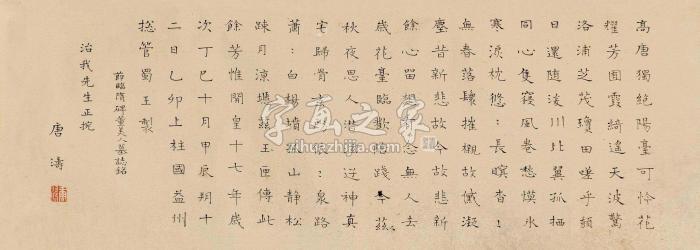 高唐獨絕陽臺可怜花
耀芳囿霞綺遙天波驚
洛浦芝茂瓊田嗟乎頹
日還隨浚川比翼孤栖
同心隻寢風卷愁慔冰
寒淚枕悠〻長暝杳〻
無春落鬟摧櫬故黛凝
塵昔新悲故今故悲新
餘心留想有念無人去
歲花臺臨歡陪踐今茲
秋夜思人潛泫迊神真
宅歸骨玄房依〻泉路
蕭〻白楊墳孤山靜松
疎月涼瘞茲玉匣傳此
餘芳惟開皇十七年歲
次丁巳十月甲辰朔十
二日乙卯上柱國益州
揔管蜀王製
節臨隋碑董美人墓誌銘
治我先生正捥
唐濤
字画之家
zihuazhijia.com